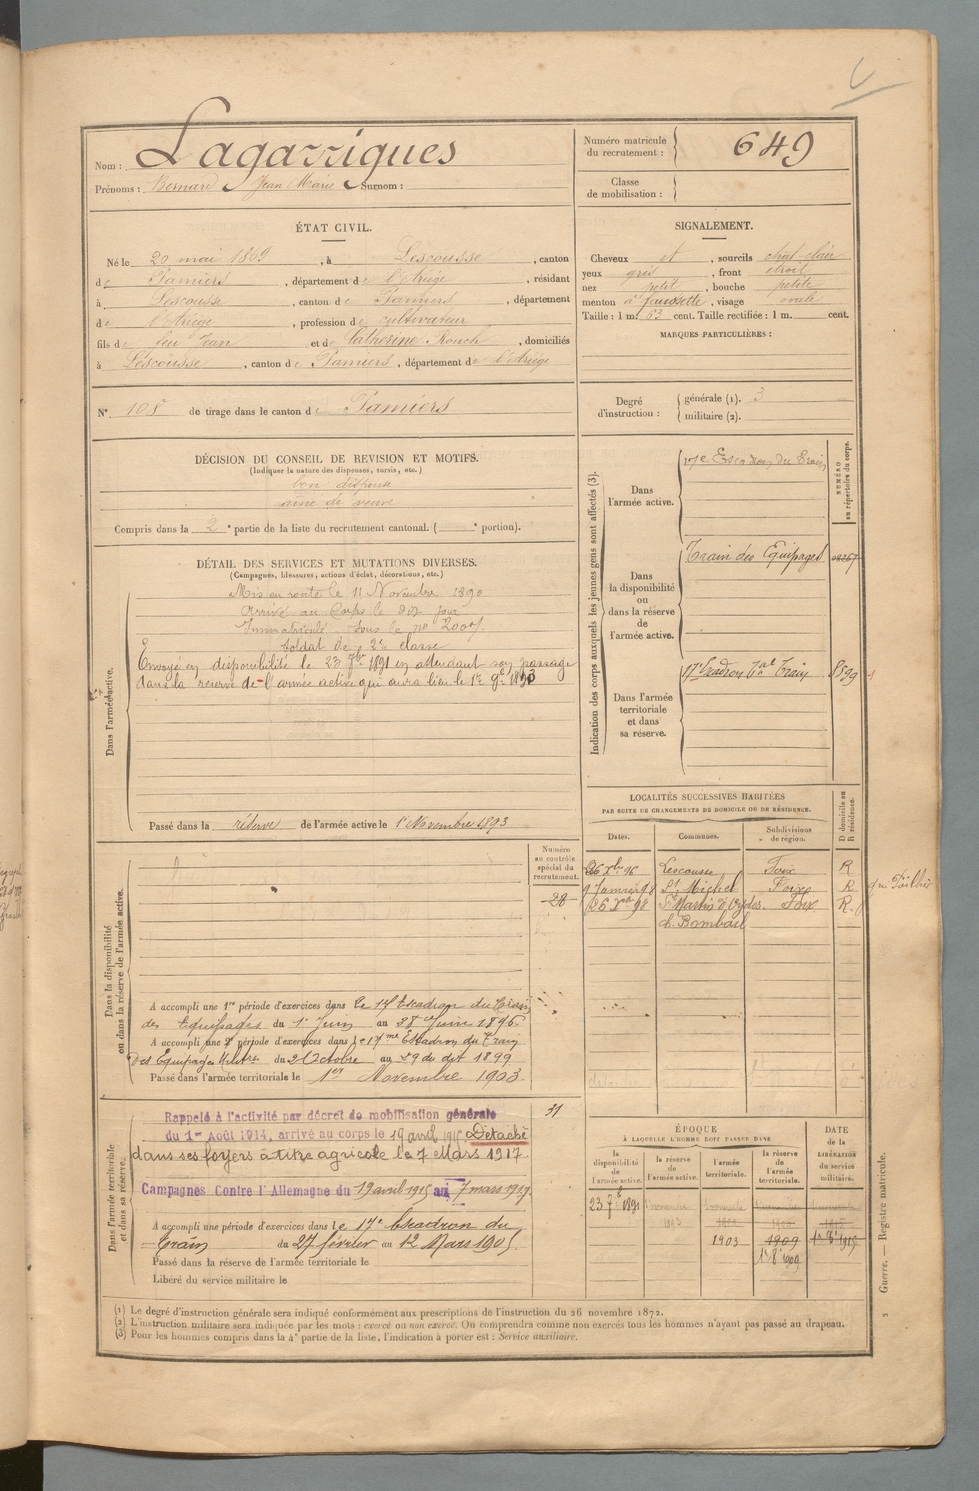 Nom : Lagarrigues
Prénoms : Bernard Jean Marie Surnom :
Numéro matricule du recrutement : 649
Classe de mobilisation :
ÉTAT CIVIL.
Né le 20 mai 1869, à Lescousse, canton
de Pamiers, département de l'Ariège, résidant
à Lescousse, canton de Pamiers, département
de l'Ariège, profession de cultivateur
fils de feu Jean et de Catherine Rouch, domiciliés
à Lescousse, canton de Pamiers, département de l'Ariège
N° 108 de tirage dans le canton de Pamiers
SIGNALEMENT.
Cheveux et, sourcils chat-clair
yeux gris, front étroit
nez petit, bouche petite
menton à fossette, visage ovale
Taille : 1 m. 63 cent. Taille rectifiée : 1 m. cent.
MARQUES PARTICULIÈRES :
Degré d'instruction : générale (1). 3
militaire (2).
DÉCISION DU CONSEIL DE REVISION ET MOTIFS.
(Indiquer la nature des dispenses, sursis, etc.)
bon dispensé
aîné de veuve
Compris dans la 2e partie de la liste du recrutement cantonal. ( e portion).
DÉTAIL DES SERVICES ET MUTATIONS DIVERSES.
(Campagnes, blessures, actions d'éclat, décorations, etc.)
Dans l'armée active.
Mis en route le 11 Novembre 1890
Arrivé au Corps le dit jour
Immatriculé sous le no
Soldat de 2e classe
Envoyé en disponibilité le 23 7bre 1891 en attendant son passage
dans la réserve de l'armée active qui aura lieu le 1er 9bre 1893
Passé dans la réserve de l'armée active le 1er Novembre 1893
Indication des corps auxquels les jeunes gens sont affectés (3).
NUMÉRO au répertoire du corps.
Dans l'armée active.
17e Escadron du Train
Dans la disponibilité ou dans la réserve de l'armée active.
Train des Equipages
Dans l'armée territoriale et dans sa réserve.
17e Escadron Train 8599
LOCALITÉS SUCCESSIVES HABITÉES
PAR SUITE DE CHANGEMENTS DE DOMICILE OU DE RÉSIDENCE.
Dates. Communes. Subdivisions de région. D domicile ou R résidence.
26 Xbre 96 Lescousse Foix R
9 Janvier 98 St Michel Foix R
St Martin d'Oydes Foix R.
ch. Bombail
Dans la disponibilité ou dans la réserve de l'armée active.
Numéro au contrôle spécial du recrutement.
28
A accompli une 1re période d'exercices dans le 17e Escadron du Train
des Equipages du 1er Juin au 28 Juin 1896.
A accompli une 2e période d'exercices dans le 17me Escadron du Train
Des Equipages Militres du 2 Octobre au 29 de dit 1899
Passé dans l'armée territoriale le 1er Novembre 1903
Dans l'armée territoriale et dans sa réserve.
31
Rappelé à l'activité par décret de mobilisation générale
du 1er Août 1914, arrivé au corps le 19 avril 1915 Détaché
dans ses foyers à titre agricole le 7 Mars 1917.
Campagnes Contre l'Allemagne du 19 avril 1915 au 7 mars 1917.
A accompli une période d'exercices dans le 17e Escadron du
Train du 27 février au 12 Mars 1905.
Passé dans la réserve de l'armée territoriale le
Libéré du service militaire le
ÉPOQUE
À LAQUELLE L'HOMME DOIT PASSER DANS
la disponibilité de l'armée active. la réserve de l'armée active. l'armée territoriale. la réserve de l'armée territoriale. DATE de la LIBÉRATION du service militaire.
23 7bre 1891 1893 1903 1909
(1) Le degré d'instruction générale sera indiqué conformément aux prescriptions de l'instruction du 26 novembre 1872.
(2) L'instruction militaire sera indiquée par les mots : exercé ou non exercé. On comprendra comme non exercés tous les hommes n'ayant pas passé au drapeau.
(3) Pour les hommes compris dans la 4e partie de la liste, l'indication à porter est : Service auxiliaire.
Guerre. — Registre matricule.
2